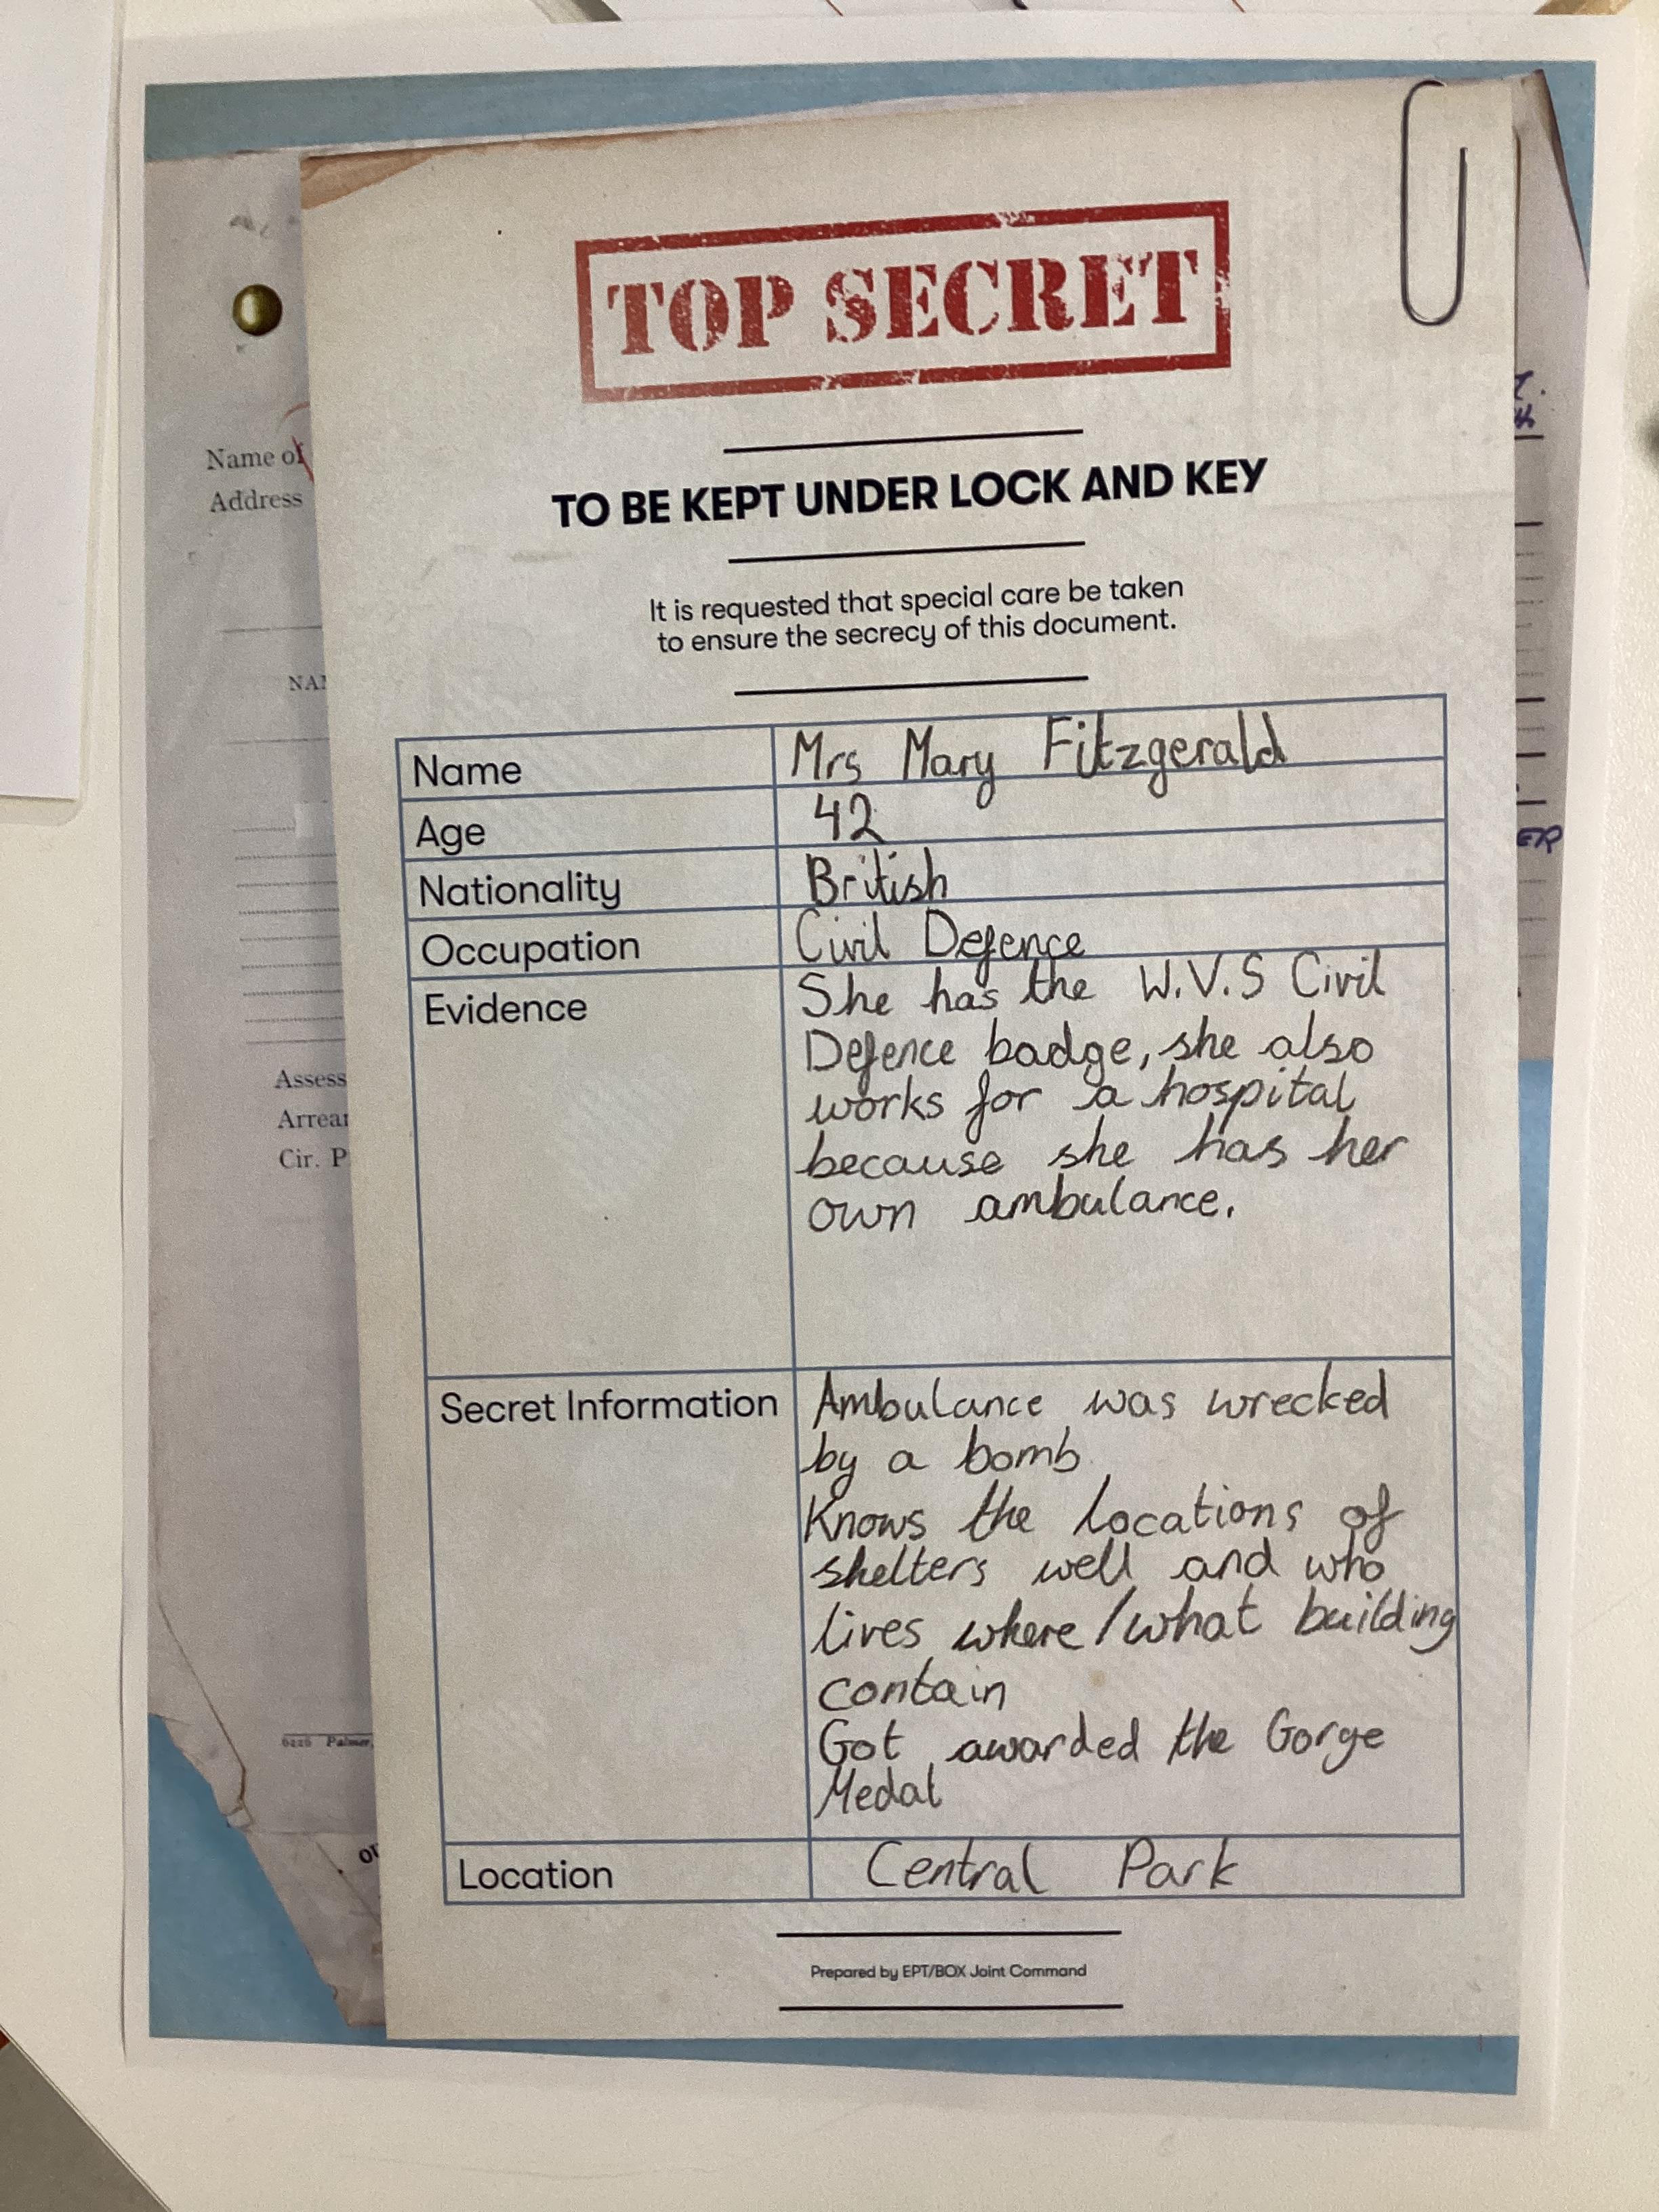 TOP SECRET
TO BE KEPT UNDER LOCK AND KEY
It is requested that special care be taken
to ensure the secrecy of this document.
Name of
Address
NAM
Assess
Arrear
Cir. P
6226 Palmer,
or
ER
Name Mrs Mary Fitzgerald
Age 42
Nationality British
Occupation Civil Defence
Evidence She has the W.V.S Civil
Defence badge, she also
works for a hospital
because she has her
own ambulance.
Secret Information Ambulance was wrecked
by a bomb
Knows the locations of
shelters well and who
lives where/what building
contain
Got awarded the Gorge
Medal
Location Central Park
Prepared by EPT/BOX Joint Command